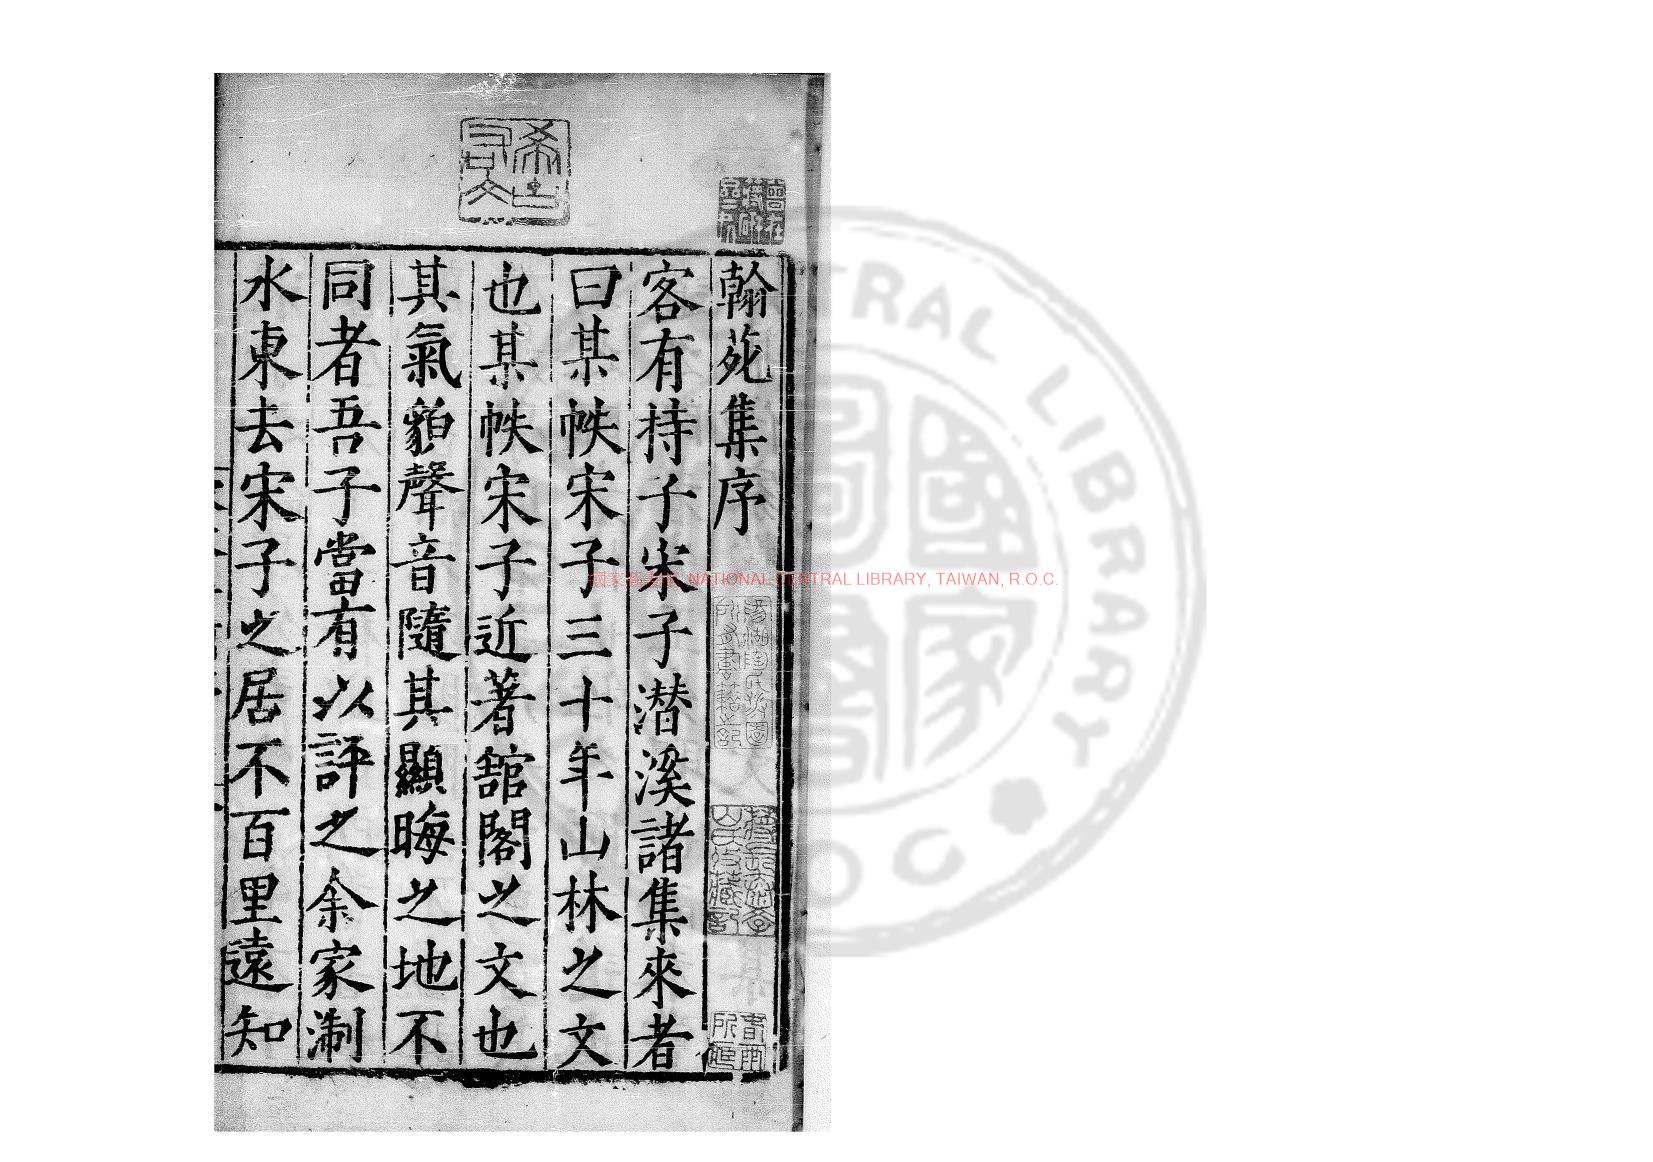 翰苑集序
客有持子宋子潛溪諸集來者
曰某帙宋子三十年山林之文
也某帙宋子近著舘閣之文也
其氣貌聲音隨其顯晦之地不
同者吾子當有以評之余家淛
水東去宋子之居不百里遠知
NATIONAL CENTRAL LIBRARY, TAIWAN, R.O.C.